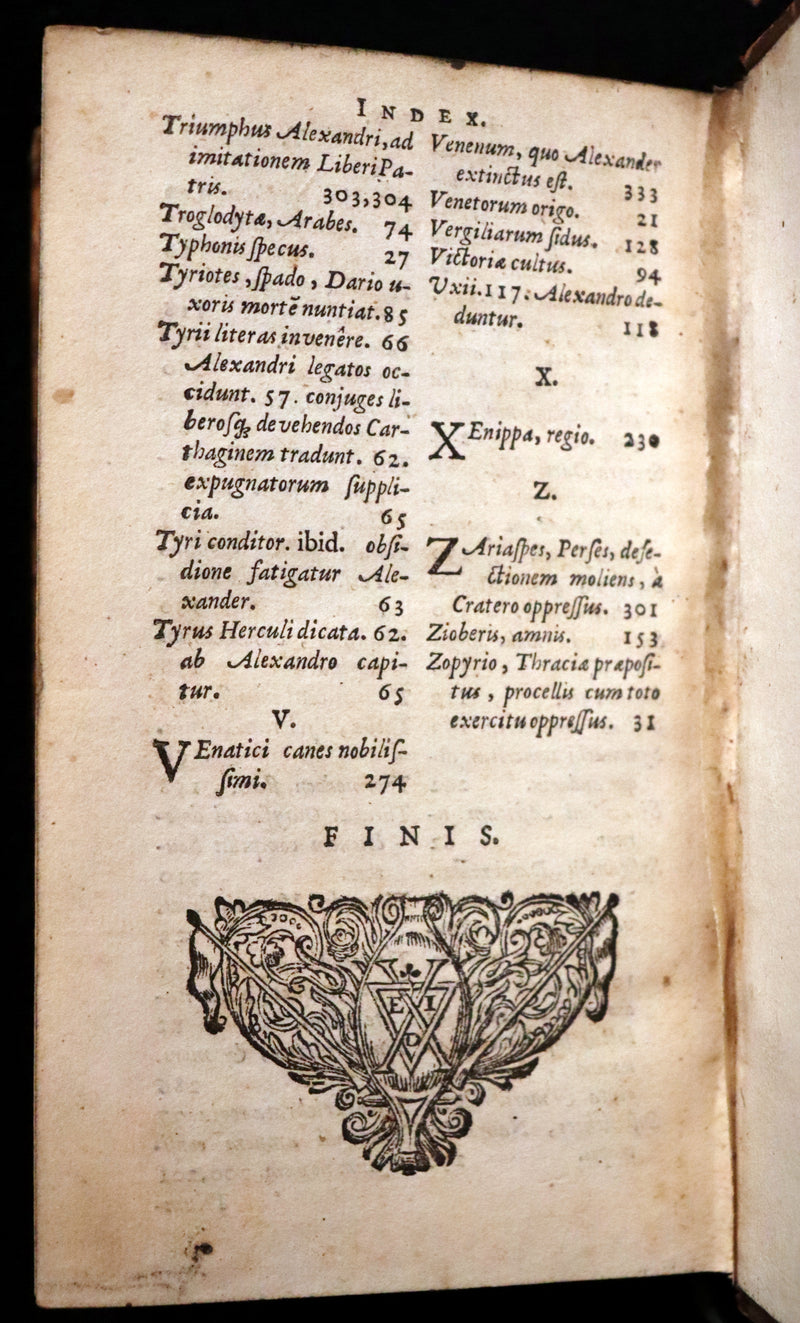 INDEX.
Triumphus Alexandri, ad
imitationem Liberi Pa-
tris. 303,304
Troglodytæ, Arabes. 74
Typhonis ſpecus. 27
Tyriotes, ſpado, Dario u-
xoris mortẽ nuntiat. 85
Tyrii literas invenêre. 66
Alexandri legatos oc-
cidunt. 57. conjuges li-
beroſq; devehendos Car-
thaginem tradunt. 62.
expugnatorum ſuppli-
cia. 65
Tyri conditor. ibid. obſi-
dione fatigatur Ale-
xander. 63
Tyrus Herculi dicata. 62.
ab Alexandro capi-
tur. 65
V.
VEnatici canes nobiliſ-
ſimi. 274
Venenum, quo Alexander
extinctus eſt. 333
Venetorum origo. 21
Vergiliarum ſidus. 128
Victoriæ cultus. 94
Vxii. 117. Alexandro de-
duntur. 118
X.
XEnippa, regio. 230
Z.
ZAriaſpes, Perſes, defe-
ctionem moliens, à
Cratero oppreſſus. 301
Zioberis, amnis. 153
Zopyrio, Thraciæ præpoſi-
tus, procellis cum toto
exercitu oppreſſus. 31
FINIS.
E I
D